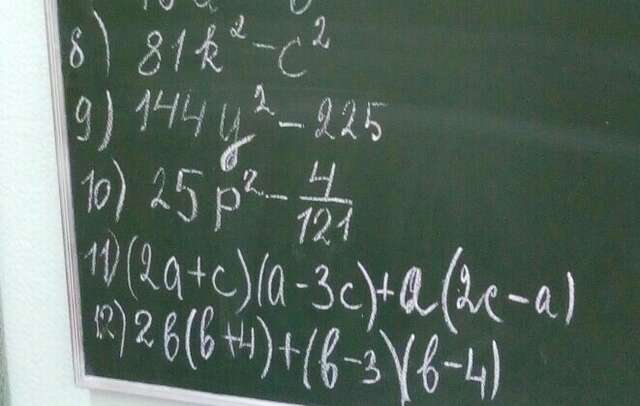 8) 81k² - c²
9) 144y² - 225
10) 25p² - 4/121
11) (2a+c)(a-3c)+a(2c-a)
12) 2b(b+4)+(b-3)(b-4)